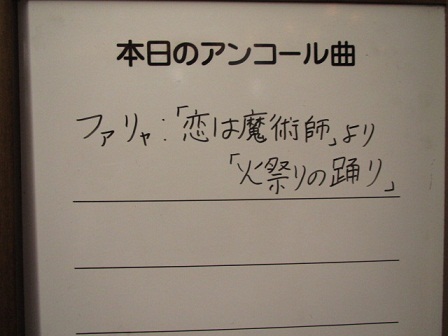 本日のアンコール曲
ファリャ:「恋は魔術師」より
「火祭りの踊り」